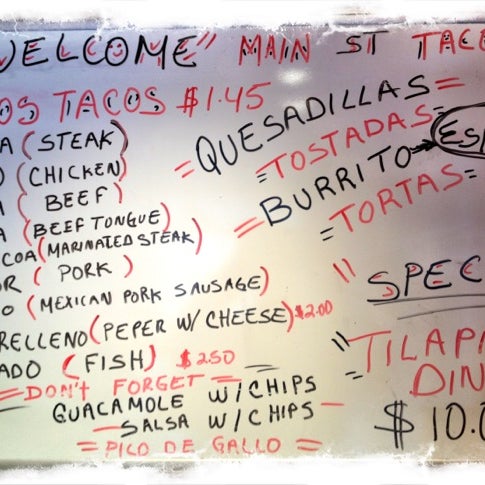 WELCOME" MAIN ST TACO
OS TACOS $1.45
A (STEAK)
O (CHICKEN)
A ( BEEF )
A (BEEF TONGUE)
COA (MARINATED STEAK)
OR ( PORK )
O (MEXICAN PORK SAUSAGE)
RELLENO (PEPER W/ CHEESE) $2.00
ADO ( FISH ) $2.50
= DON'T FORGET =
GUACAMOLE W/CHIPS
- SALSA W/CHIPS -
= PICO DE GALLO =
= QUESADILLAS =
= TOSTADAS =
= BURRITO → ESP
= TORTAS =
" SPEC
" TILAPI
DIN
$ 10.0